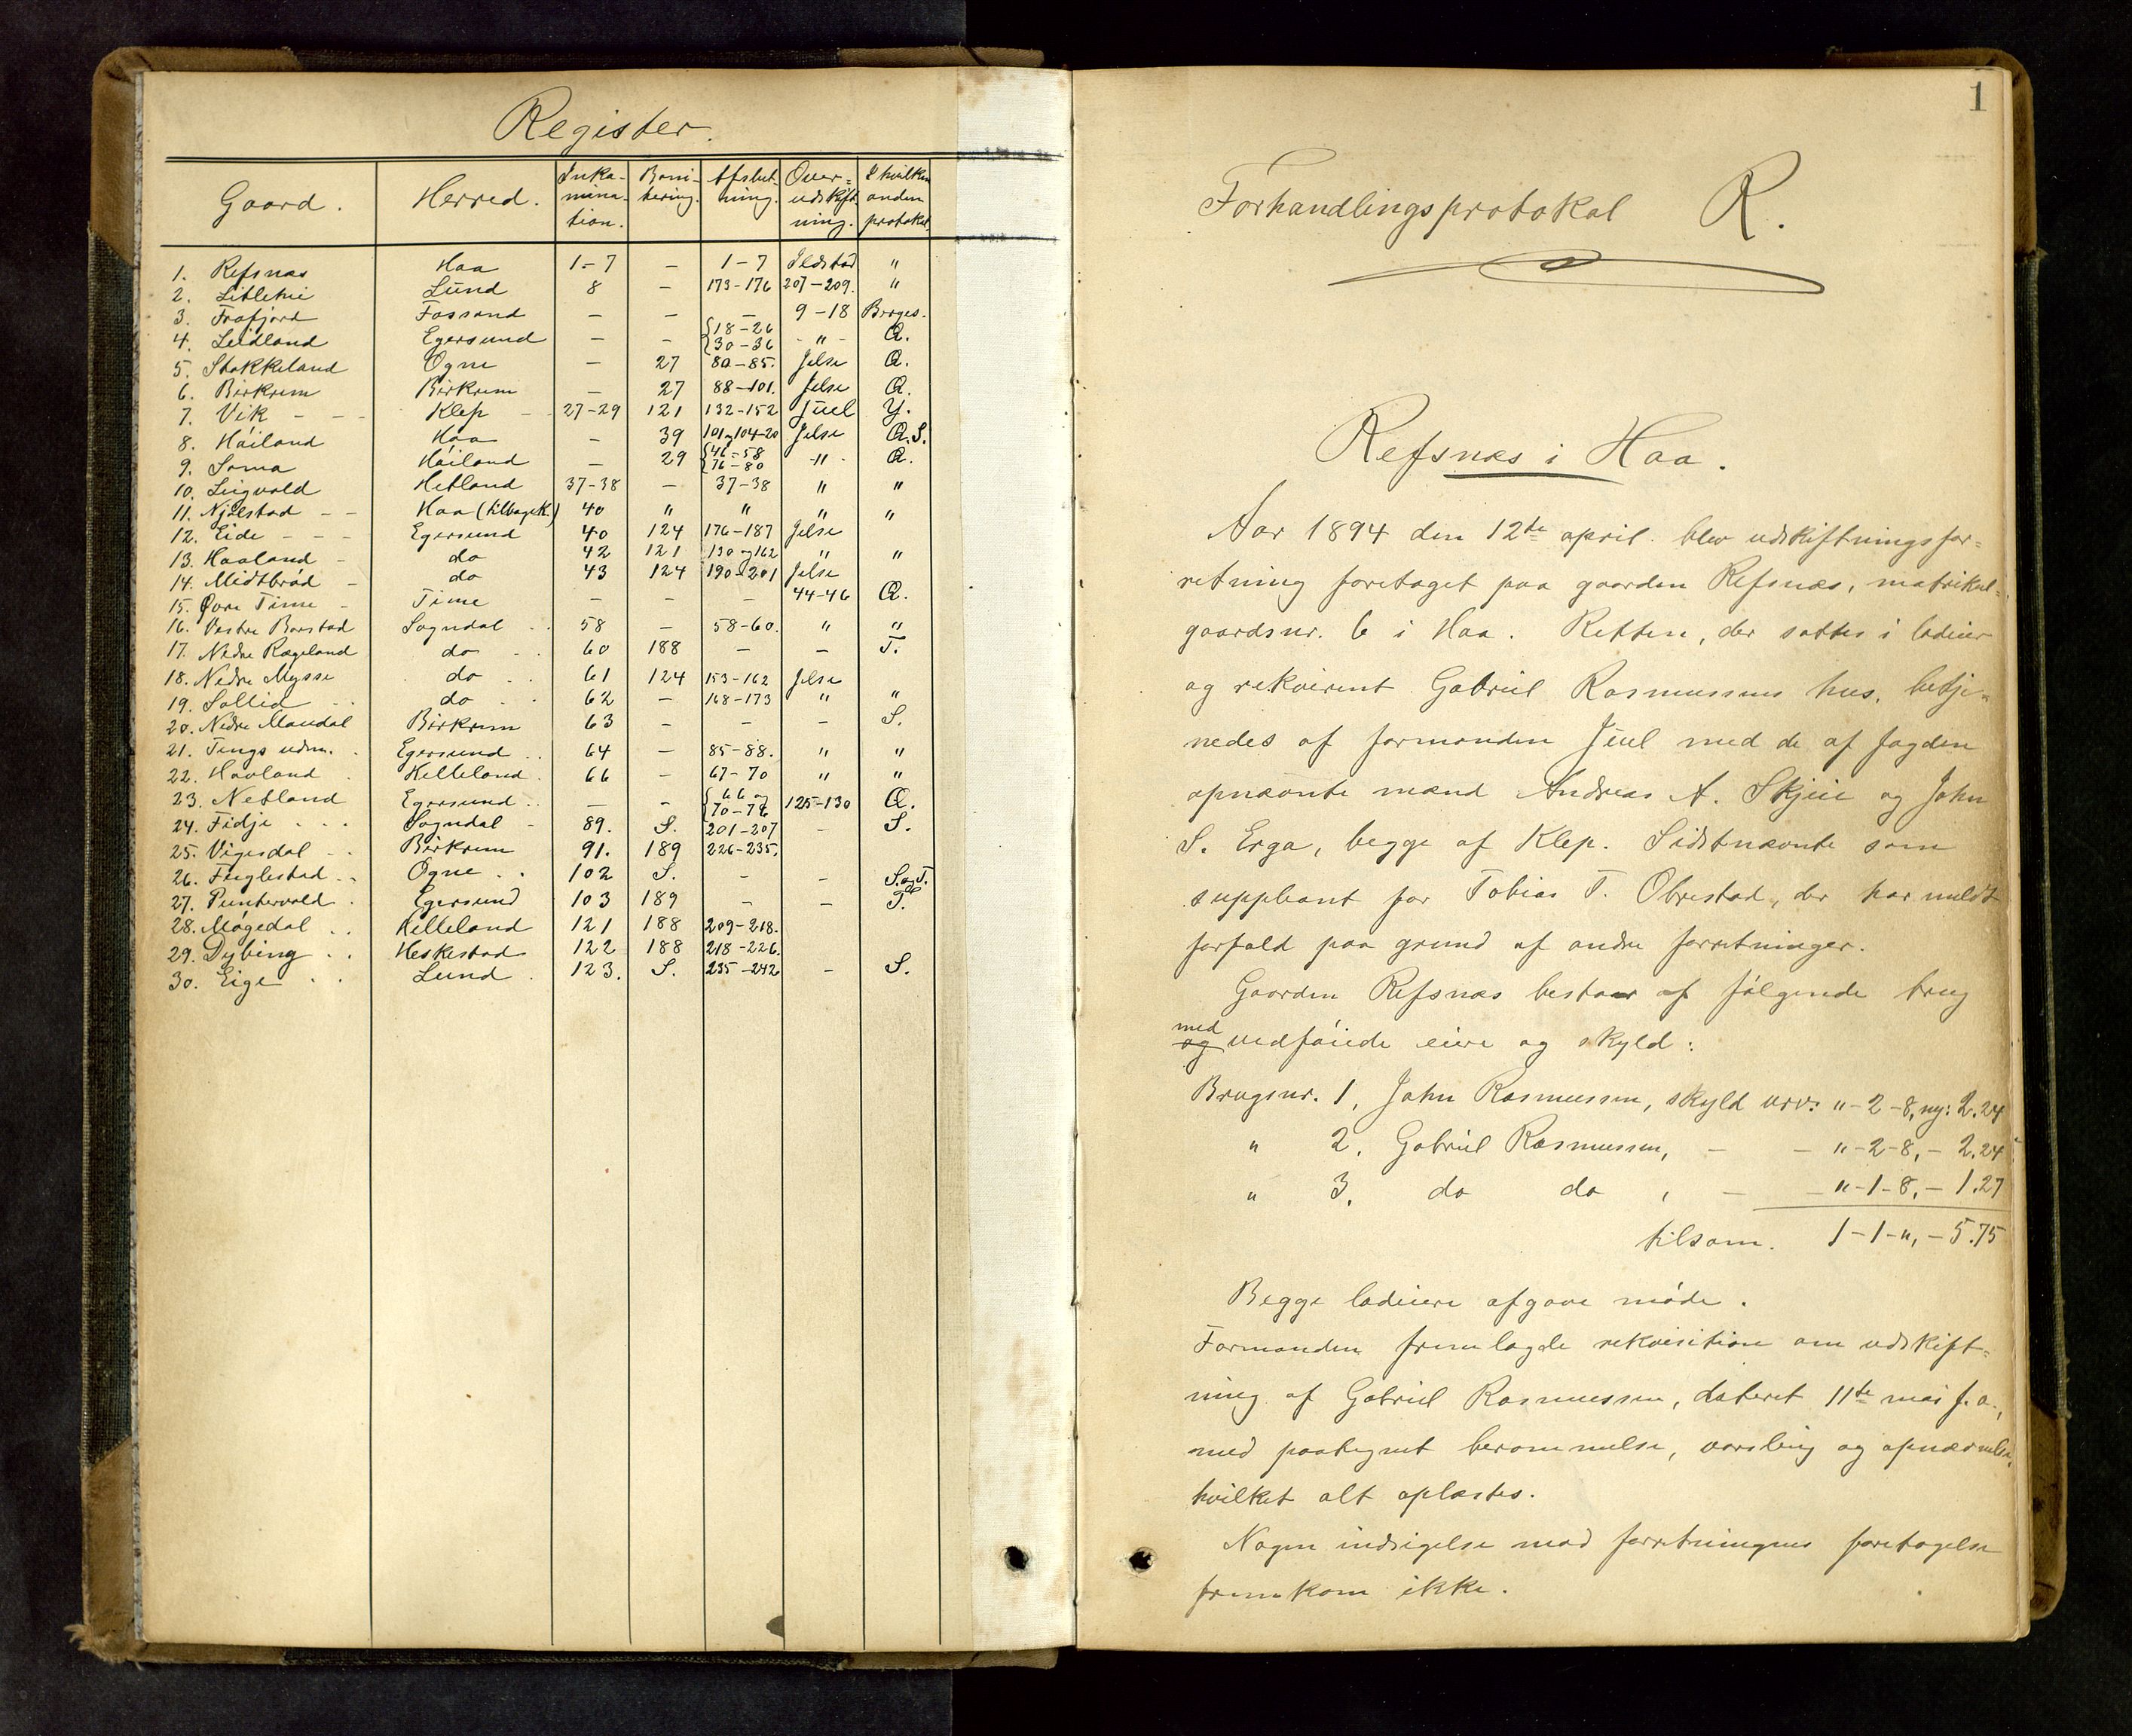 Register.
Gaard. Herred. Inka-mina-tion. Boni-tering. Afslut-ning. Over-udskift-ning. I hvilken anden protokol.
1. Refsnæs Haa 1-7 — 1-7 Ildstad "
2. Litlehei Lund 8 — 173-176 207-209. "
3. Frafjord Fossand — — — 9-18 Borges.
4. Leidland Egersund — — {18-26 30-36 - " - Q.
5. Stokkeland Ogne — 27 80-85. Jelse Q.
6. Birkrem Birkrem — 27 88-101. Jelse Q.
7. Vik - - - Klep - 27-29 121 132-152 Juel Y.
8. Høiland Haa — 39 101 og 104-20 Jelse Q.S.
9. Soma Høiland — 29 {46-58 76-80 -"- Q.
10. Lugvald Hetland 37-38 — 37-38 " "
11. Njølstad - - Haa (tilbagek.) 40 " " " "
12. Eide - - - Egersund 40 124 176-187 Jelse
13. Haaland - do 42 121 130 og 162 " "
14. Midtbrød - do 43 124 190-201 Jelse
15. Øvre Time - Time — — — 44-46 Q.
16. Vestre Barstad Sogndal . . 58 — 58-60. " "
17. Nedre Rægeland do . . 60 188 — — T.
18. Nedre Mysse do . . 61 124 153-162 Jelse
19. Sollid . . do . . 62 — 168-173 " "
20. Nedre Maudal Birkrem 63 — — — S.
21. Tengs udm. . Egersund . . 64 — 85-88. " "
22. Haaland . Helleland . 66 — 67-70 " "
23. Netland Egersund . . — — {66 og 70-76 125-130 Q.
24. Fidje . . . Sogndal - 89. S. 201-207 — S.
25. Vigesdal - . Birkrem 91. 189 226-235.
26. Fuglestad . . Ogne . . 102 S. — — S. og T.
27. Puntervold . Egersund 103 189 — — T.
28. Møgedal . . Helleland 121 188 209-218.
29. Dybing . . Heskestad 122 188 218-226.
30. Eige . . Lund . 123. S. 235-242 — S.
1
Forhandlingsprotokol R.
Refsnæs i Haa.
Aar 1894 den 12te april blev udskiftningsfor=
retning foretaget paa gaarden Refsnæs, matrikul=
gaardsnr. 6 i Haa. Retten, der sattes i lodeier
og rekvirent Gabriel Rasmussens hus, betje=
nedes af formanden Juel med de af fogden
opnævnte mænd Andreas A. Skjeie og John
S. Erga, begge af Klep. Sidstnævnte som
suppleant for Tobias T. Obrestad, der har meldt
forfald paa grund af andre forretninger.
Gaarden Refsnæs bestaar af følgende brug
med
og vedføiede eiere og skyld:
Brugsnr. 1, John Rasmussen, skyld urv: "-2-8, ny: 2.24
" 2, Gabriel Rasmussen, — — "-2-8, - 2.24
" 3, do do , — — "-1-8, - 1.27
tilsam. 1-1-", - 5.75
Begge lodeiere afgave møde.
Formanden fremlagde rekvisition om udskift=
ning af Gabriel Rasmussen, dateret 11te mai f.a.,
med paategnet berammelse, varsling og opnævnelse,
hvilket alt oplæstes.
Nogen indsigelse mod forretningens foretagelse
fremkom ikke.